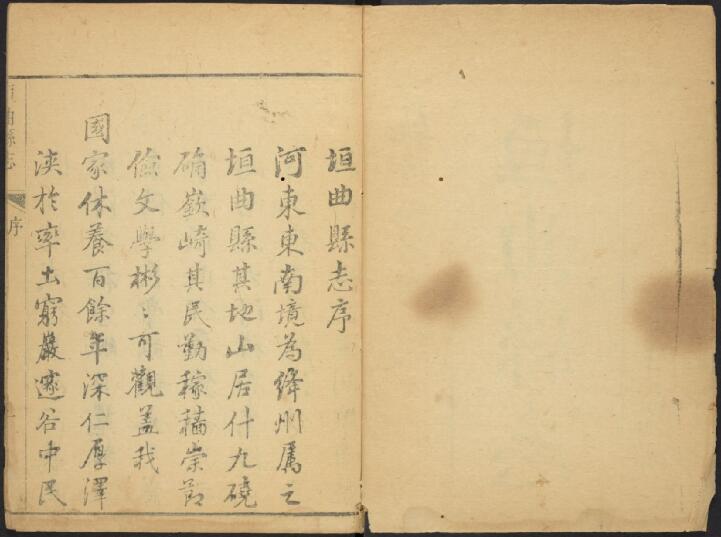 垣曲縣志序
河東東南境為絳州屬之
垣曲縣其地山居什九磽
确嶔崎其民勤稼穡崇節
儉文學彬〻可觀蓋我
國家休養百餘年深仁厚澤
浹於率土窮巖邃谷中民
垣曲縣志
序